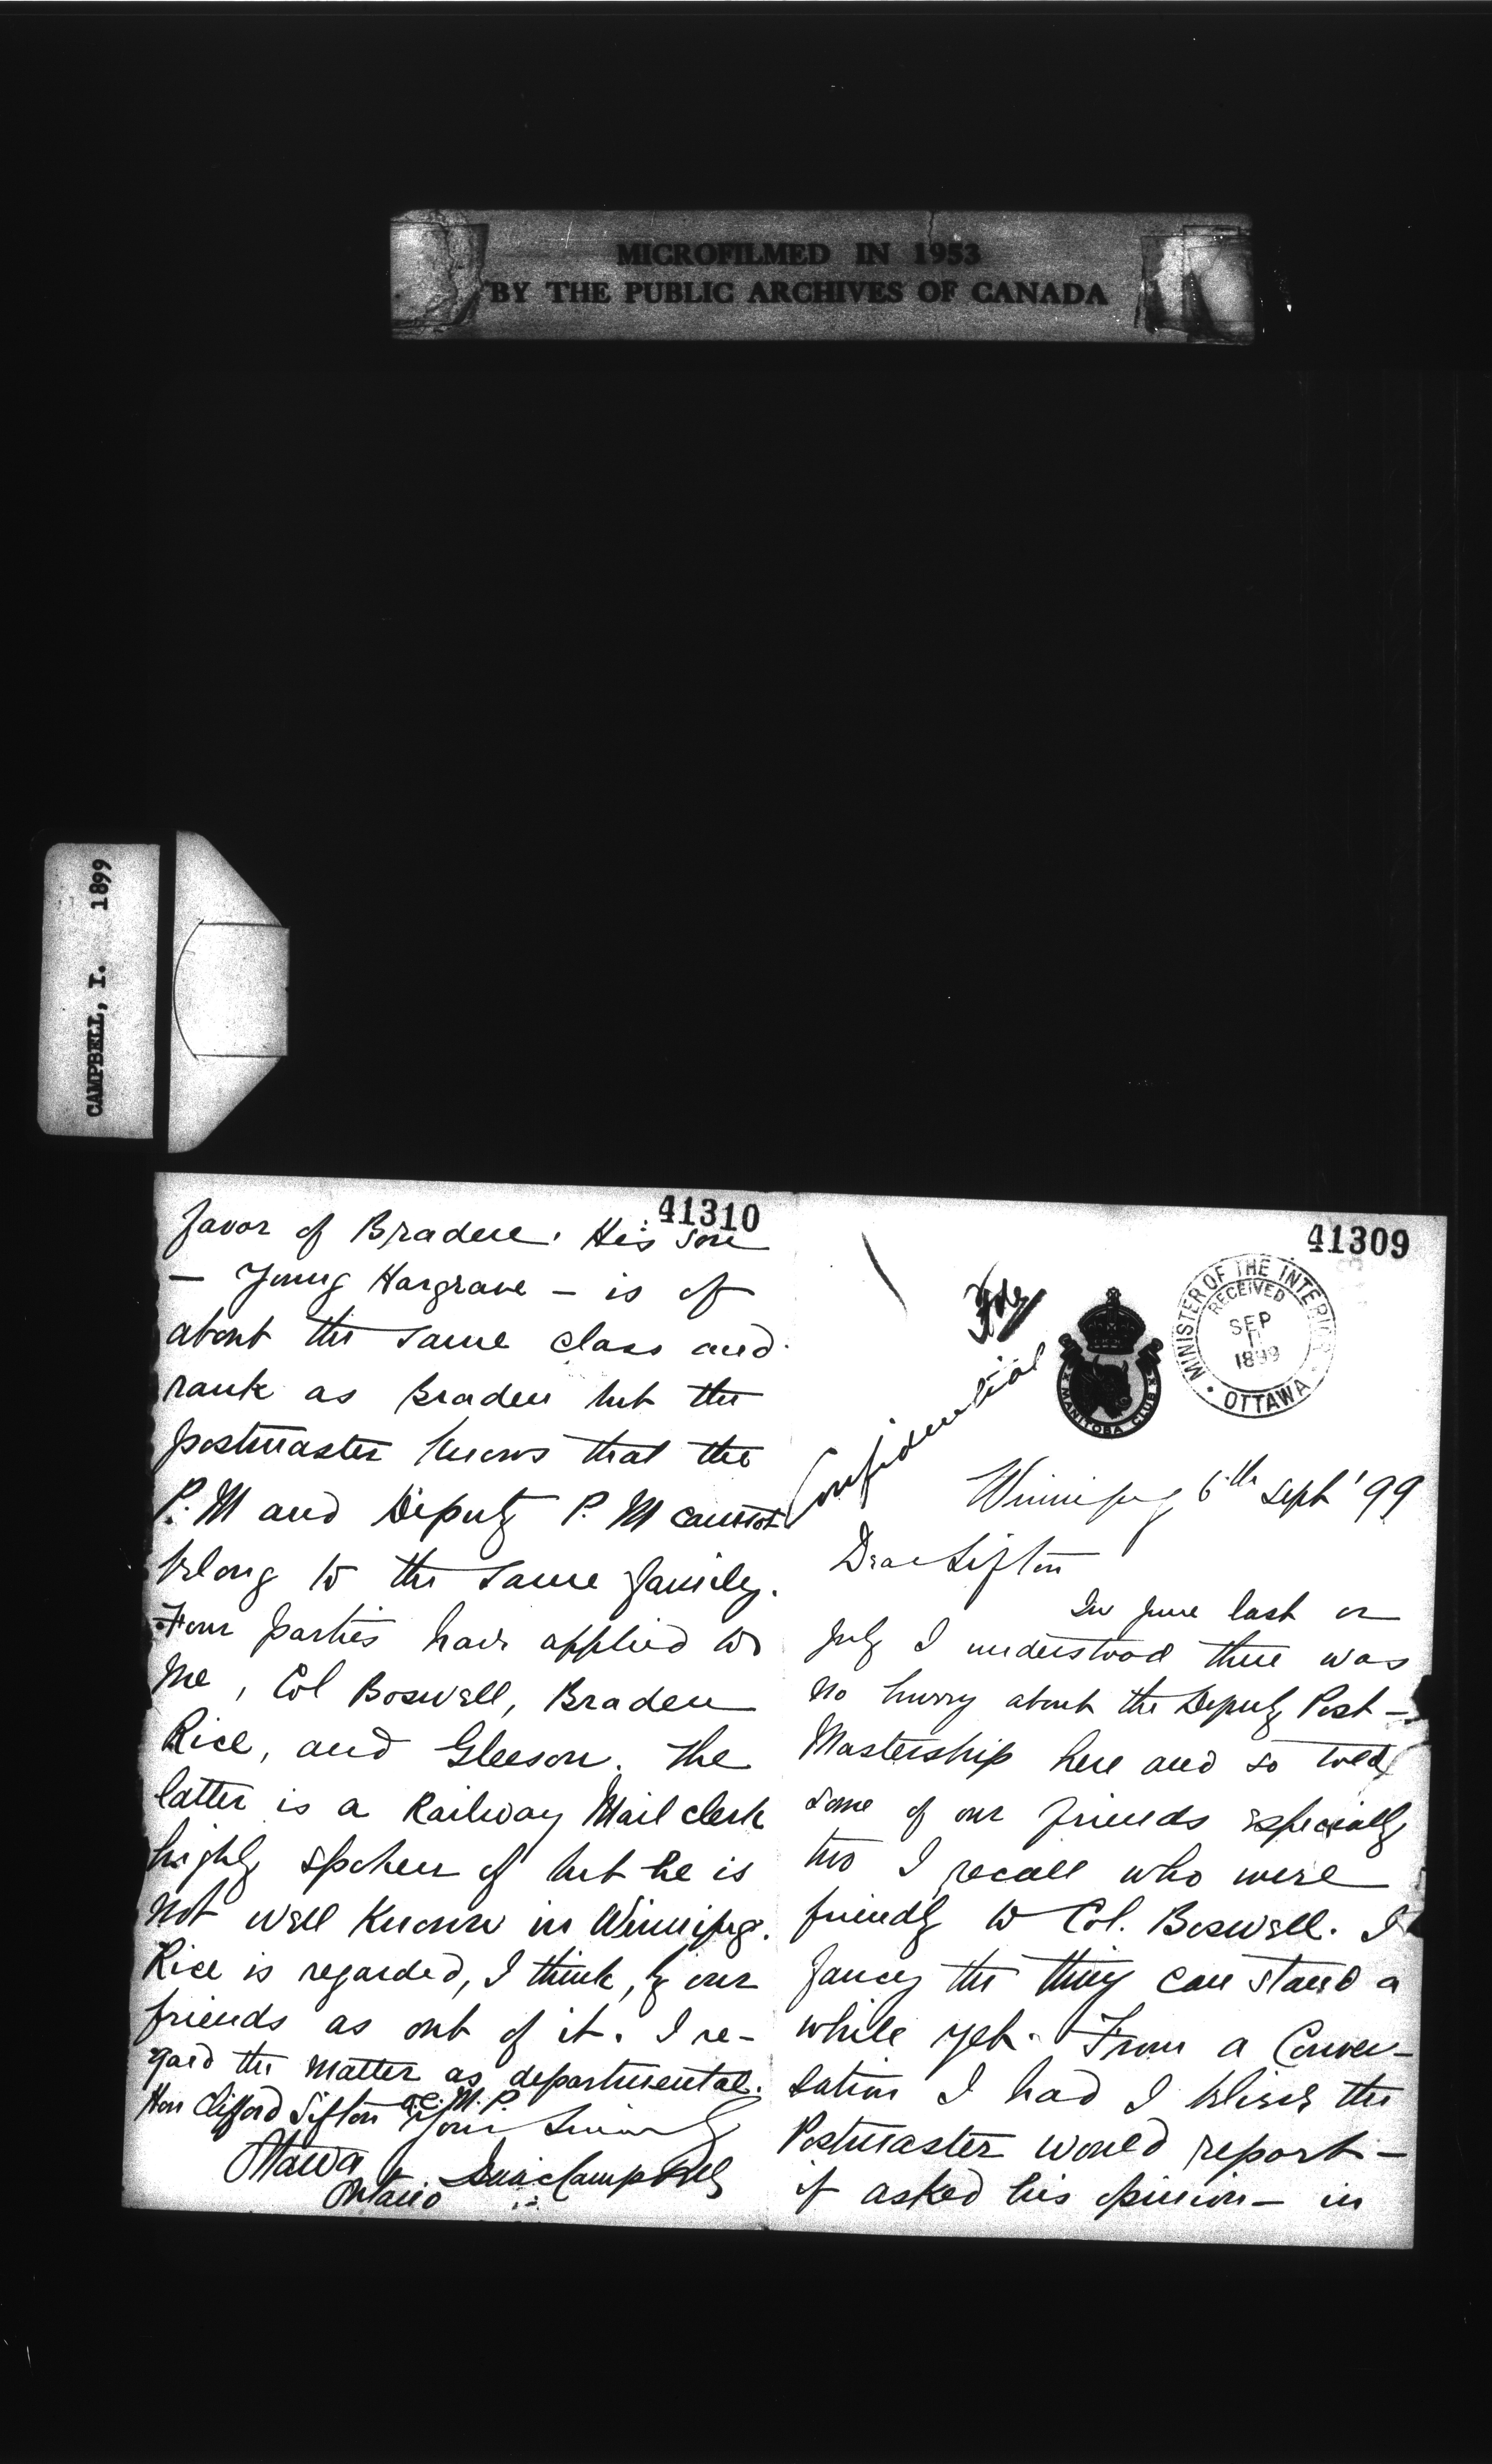 MICROFILMED IN 1953
BY THE PUBLIC ARCHIVES OF CANADA
CAMPBELL, I. 1899
41309
MINISTER OF THE INTERIOR
RECEIVED
SEP
1899
OTTAWA
MANITOBA CLUB
Confidential
Winnipeg 6th Sept '99
Dear Sifton
In June last or
July I understood there was
no hurry about the Deputy Post-
Mastership here and so told
some of our friends especially
two I recall who were
friendly to Col. Boswell. I
fancy the thing can stand a
while yet. From a Conver-
sation I had I believe the
Postmaster would report -
if asked his opinion - in
41310
favor of Braden. His son
- Young Hargrave - is of
about the same class and
rank as Braden but the
postmaster knows that the
P. M and Deputy P. M cannot
belong to the same family.
Four parties have applied to
me, Col Boswell, Braden
Rice, and Gleeson. The
latter is a Railway Mail clerk
highly spoken of but he is
not well known in Winnipeg.
Rice is regarded, I think, by our
friends as out of it. I re-
gard the matter as departmental.
Hon Clifford Sifton Q.C. M.P.
Yours Sincerely
Ottawa
Ontario
Isaac Campbell